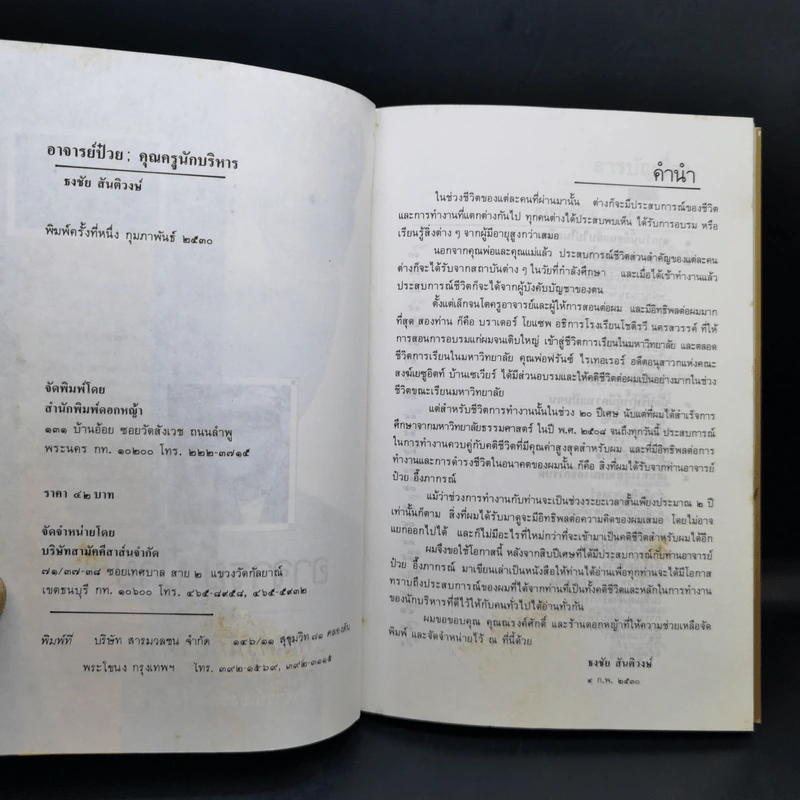 อาจารย์ป๋วย ; คุณครูนักบริหาร
ธงชัย สันติวงษ์
พิมพ์ครั้งที่หนึ่ง กุมภาพันธ์ ๒๕๓๐
จัดพิมพ์โดย
สำนักพิมพ์ดอกหญ้า
๑๓๑ บ้านอ้อย ซอยวัดสังเวช ถนนลำพู
พระนคร กท. ๑๐๒๐๐ โทร. ๒๒๒-๓๗๑๕
ราคา ๔๒ บาท
จัดจำหน่ายโดย
บริษัทสามัคคีสาส์นจำกัด
๗๑/๓๗-๓๘ ซอยเทศบาล สาย ๒ แขวงวัดกัลยาณ์
เขตธนบุรี กท. ๑๐๖๐๐ โทร. ๔๖๕-๘๙๕๘, ๔๖๕-๕๙๓๒
พิมพ์ที่ บริษัท สารมวลชน จำกัด ๑๔๖/๑๑ สุขุมวิท ๗๑ คลองตัน
พระโขนง กรุงเทพฯ โทร. ๓๙๒-๑๕๖๙, ๓๙๒-๓๑๑๕
คำนำ
ในช่วงชีวิตของแต่ละคนที่ผ่านมานั้น ต่างก็จะมีประสบการณ์ของชีวิต
และการทำงานที่แตกต่างกันไป ทุกคนต่างได้ประสบพบเห็น ได้รับการอบรม หรือ
เรียนรู้สิ่งต่าง ๆ จากผู้มีอายุสูงกว่าเสมอ
นอกจากคุณพ่อและคุณแม่แล้ว ประสบการณ์ชีวิตส่วนสำคัญของแต่ละคน
ต่างก็จะได้รับจากสถาบันต่าง ๆ ในวัยที่กำลังศึกษา และเมื่อได้เข้าทำงานแล้ว
ประสบการณ์ชีวิตก็จะได้จากผู้บังคับบัญชาของตน
ตั้งแต่เล็กจนโตครูอาจารย์และผู้ให้การสอนต่อผม และมีอิทธิพลต่อผมมาก
ที่สุด สองท่าน ก็คือ บราเดอร์ โยแซพ อธิการโรงเรียนโชติรวี นครสวรรค์ ที่ให้
การสอนการอบรมแก่ผมจนเติบใหญ่ เข้าสู่ชีวิตการเรียนในมหาวิทยาลัย และตลอด
ชีวิตการเรียนในมหาวิทยาลัย คุณพ่อฟรันซ์ ไรเทอเรอร์ อดีตอนุสาวกแห่งคณะ
สงฆ์เยซูอิตท์ บ้านเซเวียร์ ได้มีส่วนอบรมและให้คติชีวิตต่อผมเป็นอย่างมากในช่วง
ชีวิตขณะเรียนมหาวิทยาลัย
แต่สำหรับชีวิตการทำงานนั้นในช่วง ๒๐ ปีเศษ นับแต่ที่ผมได้สำเร็จการ
ศึกษาจากมหาวิทยาลัยธรรมศาสตร์ ในปี พ.ศ. ๒๕๐๘ จนถึงทุกวันนี้ ประสบการณ์
ในการทำงานควบคู่กับคติชีวิตที่มีคุณค่าสูงสุดสำหรับผม และที่มีอิทธิพลต่อการ
ทำงานและการดำรงชีวิตในอนาคตของผมนั้น ก็คือ สิ่งที่ผมได้รับจากท่านอาจารย์
ป๋วย อึ๊งภากรณ์
แม้ว่าช่วงการทำงานกับท่านจะเป็นช่วงระยะเวลาสั้นเพียงประมาณ ๒ ปี
เท่านั้นก็ตาม สิ่งที่ผมได้รับมาดูจะมีอิทธิพลต่อความคิดของผมเสมอ โดยไม่อาจ
แยกออกไปได้ และก็ไม่มีอะไรที่ใหม่กว่าที่จะเข้ามาเป็นคติชีวิตสำหรับผมได้อีก
ผมจึงขอใช้โอกาสนี้ หลังจากสิบปีเศษที่ได้มีประสบการณ์กับท่านอาจารย์
ป๋วย อึ๊งภากรณ์ มาเขียนเล่าเป็นหนังสือให้ท่านได้อ่านเพื่อทุกท่านจะได้มีโอกาส
ทราบถึงประสบการณ์ของผมที่ได้จากท่านที่เป็นทั้งคติชีวิตและหลักในการทำงาน
ของนักบริหารที่ดีไว้ให้กับคนทั่วไปได้อ่านทั่วกัน
ผมขอขอบคุณ คุณณรงค์ศักดิ์ และร้านดอกหญ้าที่ให้ความช่วยเหลือจัด
พิมพ์ และจัดจำหน่ายไว้ ณ ที่นี้ด้วย
ธงชัย สันติวงษ์
๔ ก.พ. ๒๕๓๐